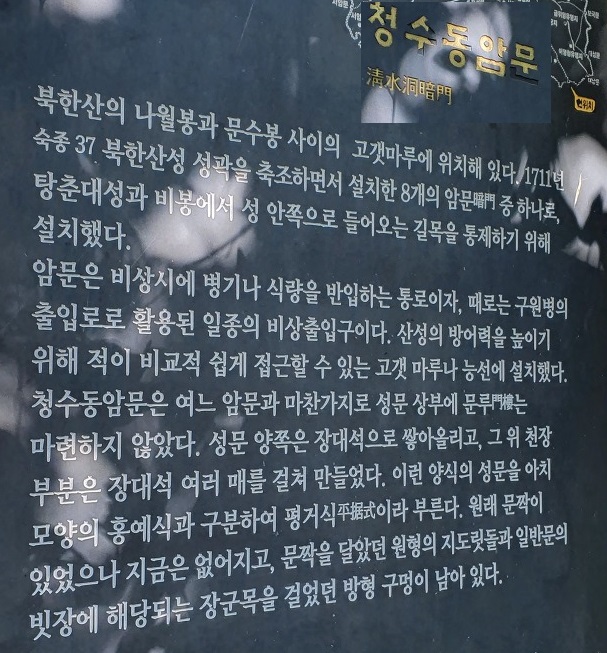 청수동암문
淸水洞暗門
현위치
북한산의 나월봉과 문수봉 사이의 고갯마루에 위치해 있다. 1711년
숙종 37 북한산성 성곽을 축조하면서 설치한 8개의 암문暗門 중 하나로,
탕춘대성과 비봉에서 성 안쪽으로 들어오는 길목을 통제하기 위해
설치했다.
암문은 비상시에 병기나 식량을 반입하는 통로이자, 때로는 구원병의
출입로로 활용된 일종의 비상출입구이다. 산성의 방어력을 높이기
위해 적이 비교적 쉽게 접근할 수 있는 고갯 마루나 능선에 설치했다.
청수동암문은 여느 암문과 마찬가지로 성문 상부에 문루門樓는
마련하지 않았다. 성문 양쪽은 장대석으로 쌓아올리고, 그 위 천장
부분은 장대석 여러 매를 걸쳐 만들었다. 이런 양식의 성문을 아치
모양의 홍예식과 구분하여 평거식平据式이라 부른다. 원래 문짝이
있었으나 지금은 없어지고, 문짝을 달았던 원형의 지도릿돌과 일반문의
빗장에 해당되는 장군목을 걸었던 방형 구멍이 남아 있다.